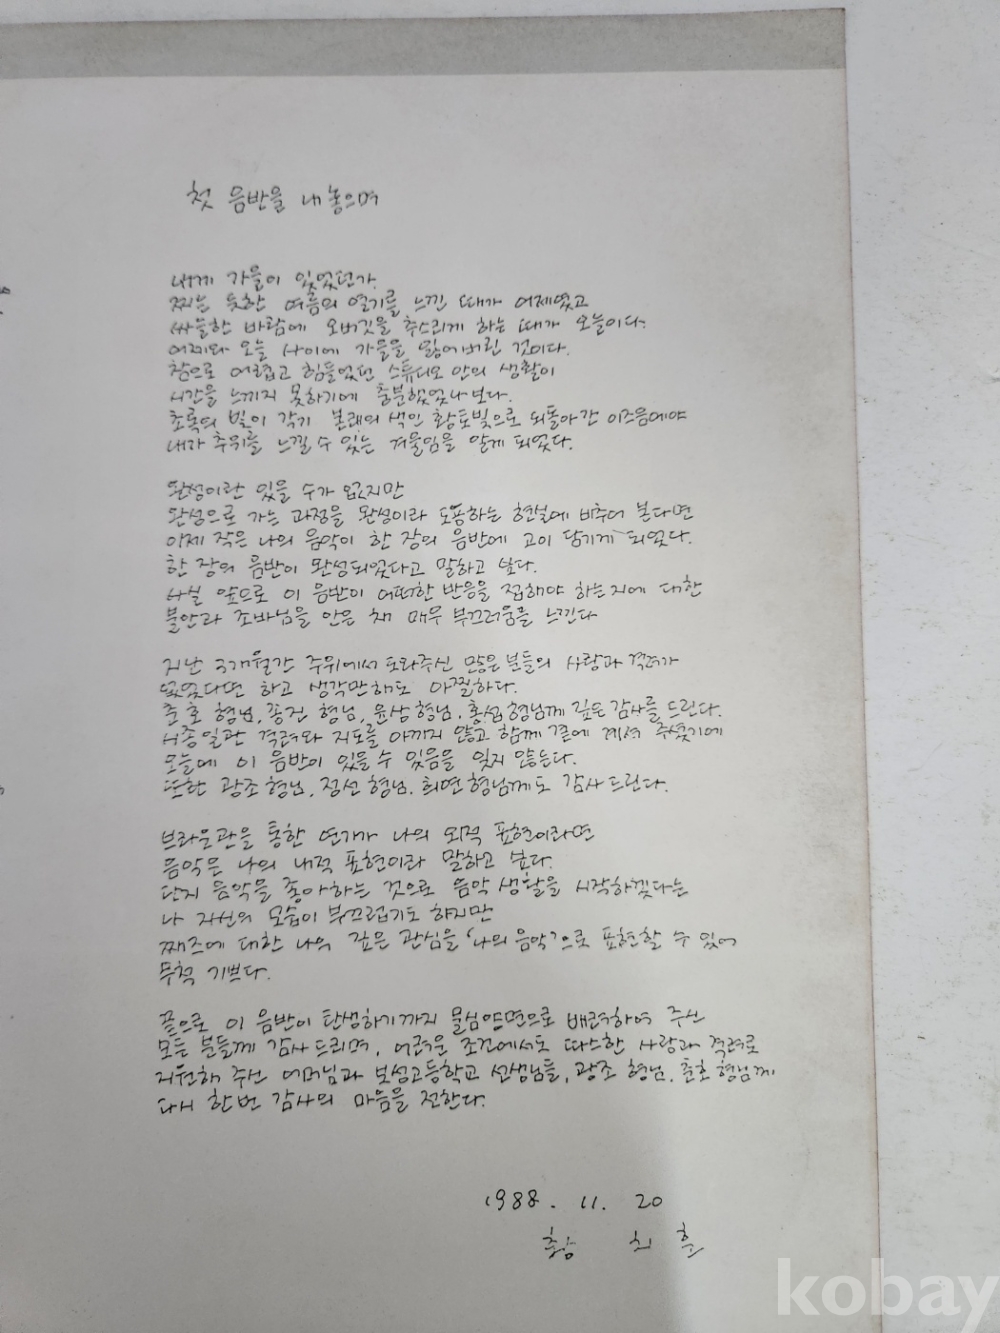 첫 음반을 내 놓으며
내게 가을이 있었던가.
찌는 듯한 여름의 열기를 느낀 때가 어제였고
싸늘한 바람에 오버깃을 추스리게 하는 때가 오늘이다.
어제와 오늘 사이에 가을을 잃어버린 것이다.
참으로 어렵고 힘들었던 스튜디오 안의 생활이
시간을 느끼지 못하기에 충분했었나 보다.
초록의 빛이 각기 본래의 색인 황토빛으로 되돌아간 이즈음에야
내가 추위를 느낄 수 있는 겨울임을 알게 되었다.
완성이란 있을 수가 없지만
완성으로 가는 과정을 완성이라 도용하는 현실에 비추어 본다면
이제 작은 나의 음악이 한 장의 음반에 고이 담기게 되었다.
한 장의 음반이 완성되었다고 말하고 싶다.
사실 앞으로 이 음반이 어떠한 반응을 접해야 하는지에 대한
불안과 조바심을 안은 채 매우 부끄러움을 느낀다
지난 3개월간 주위에서 도와주신 많은 분들의 사랑과 격려가
없었다면 하고 생각만해도 아찔하다.
준호 형님, 종진 형님, 윤상 형님, 홍섭 형님께 깊은 감사를 드린다.
시종일관 격려와 지도를 아끼지 않고 함께 곁에 계셔 주셨기에
오늘에 이 음반이 있을 수 있음을 잊지 않는다.
또한 광조 형님, 정선 형님, 희연 형님께도 감사 드린다.
브라운관을 통한 연기가 나의 외적 표현이라면
음악은 나의 내적 표현이라 말하고 싶다.
단지 음악을 좋아하는 것으로 음악 생활을 시작하겠다는
나 자신의 모습이 부끄럽기도 하지만
째즈에 대한 나의 깊은 관심을 '나의 음악'으로 표현할 수 있어
무척 기쁘다.
끝으로 이 음반이 탄생하기까지 물심양면으로 배려하여 주신
모든 분들께 감사 드리며, 어려운 조건에서도 따스한 사랑과 격려로
지원해 주신 어머님과 보성고등학교 선생님들, 광조 형님, 준호 형님께
다시 한번 감사의 마음을 전한다.
1988. 11. 20
kobay